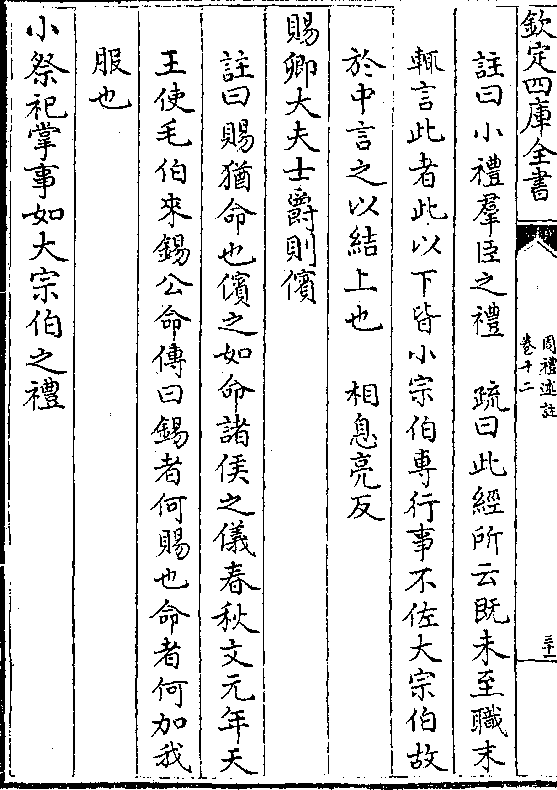 欽定四庫全書
周禮述註
卷十二
三十一
註曰小禮羣臣之禮　疏曰此經所云既未至職末
輒言此者此以下皆小宗伯專行事不佐大宗伯故
於中言之以結上也　相息亮反
賜卿大夫士爵則儐
註曰賜猶命也儐之如命諸侯之儀春秋文元年天
王使毛伯來錫公命傳曰錫者何賜也命者何加我
服也
小祭祀掌事如大宗伯之禮